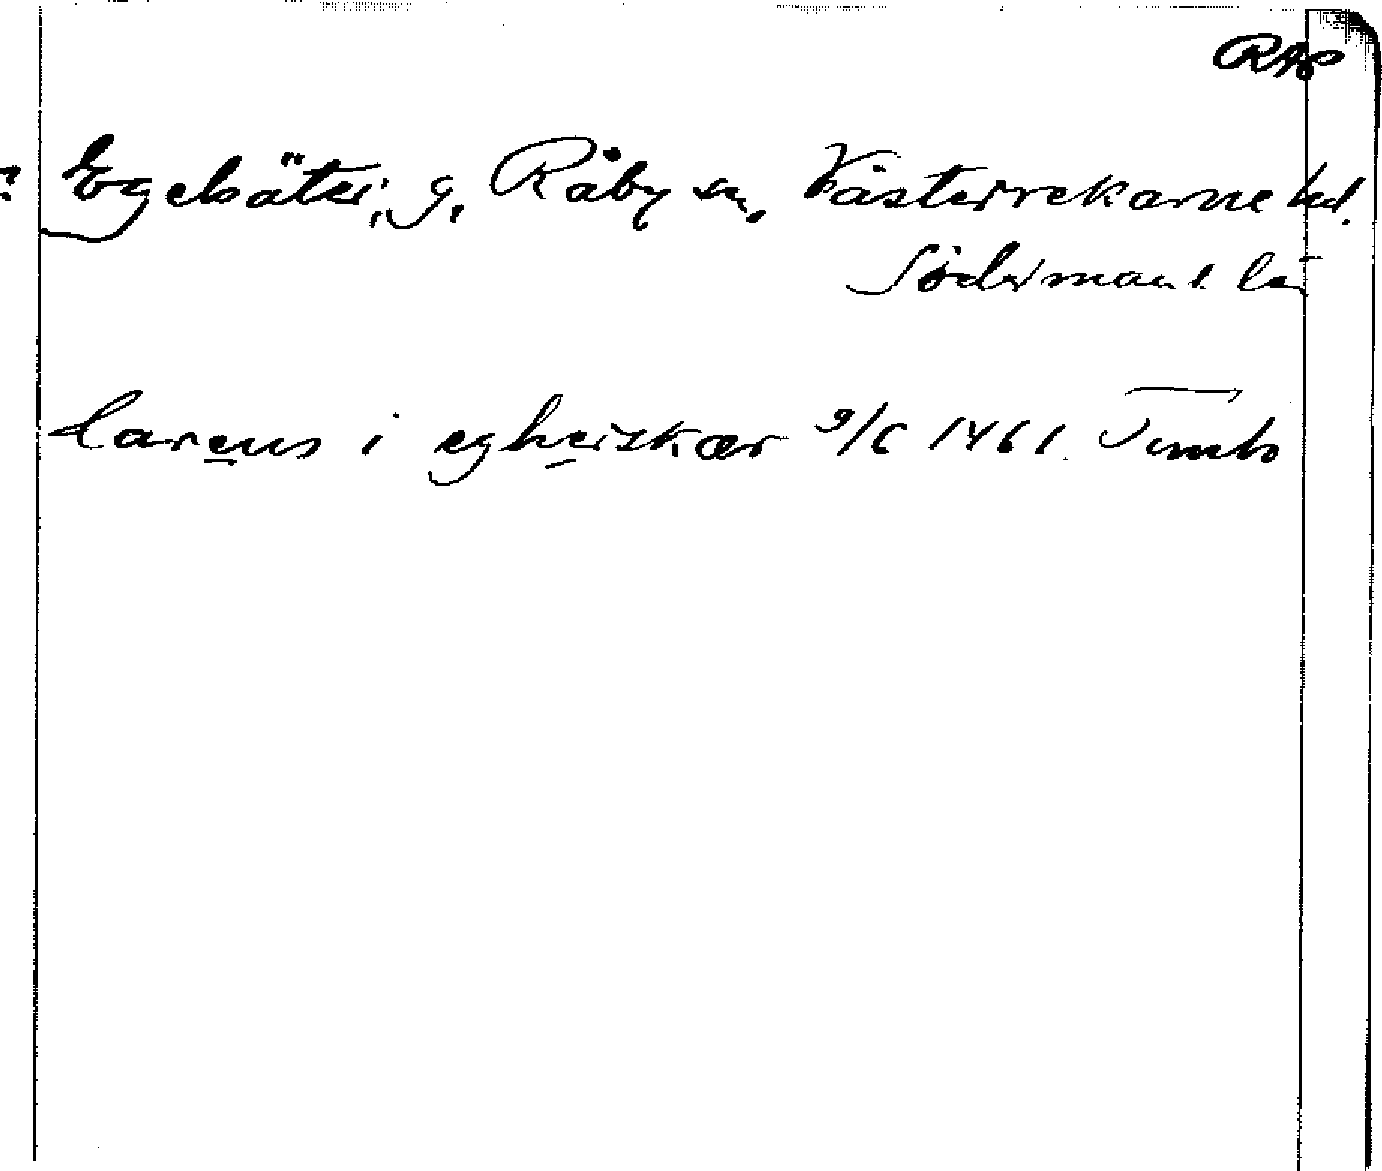 RAP
? Egebäter, g, Råby sn, Västerrekarne hd.
Södermanl. län
larens i egheiskær 9/6 1461.